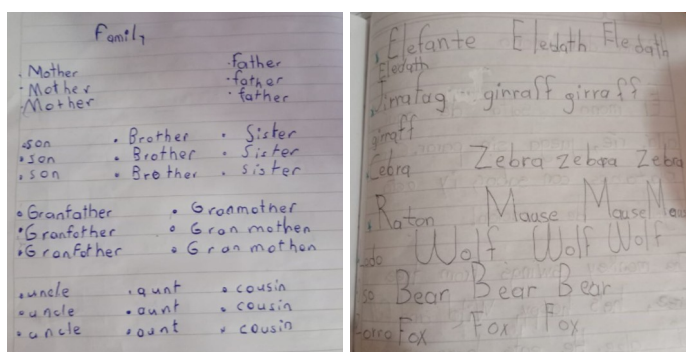 Family
. Mother .father
. Mother .father
. Mother . father
.son . Brother . Sister
.son . Brother . Sister
.son . Brother . sister
. Granfather . Granmother
. Granfother . Gran mothen
. Granfother . Gran mothon
.uncle .aunt . cousin
.uncle .aunt . cousin
.uncle .aunt . cousin
Elefante Eledath Eledath
Eledath
Jirrafag ginraff girraff
girraff
Cebra Zebra zebra Zebra
Raton Mause Mause
Wolf Wolf Wolf
Bear Bear Bear
Zorro Fox Fox Fox